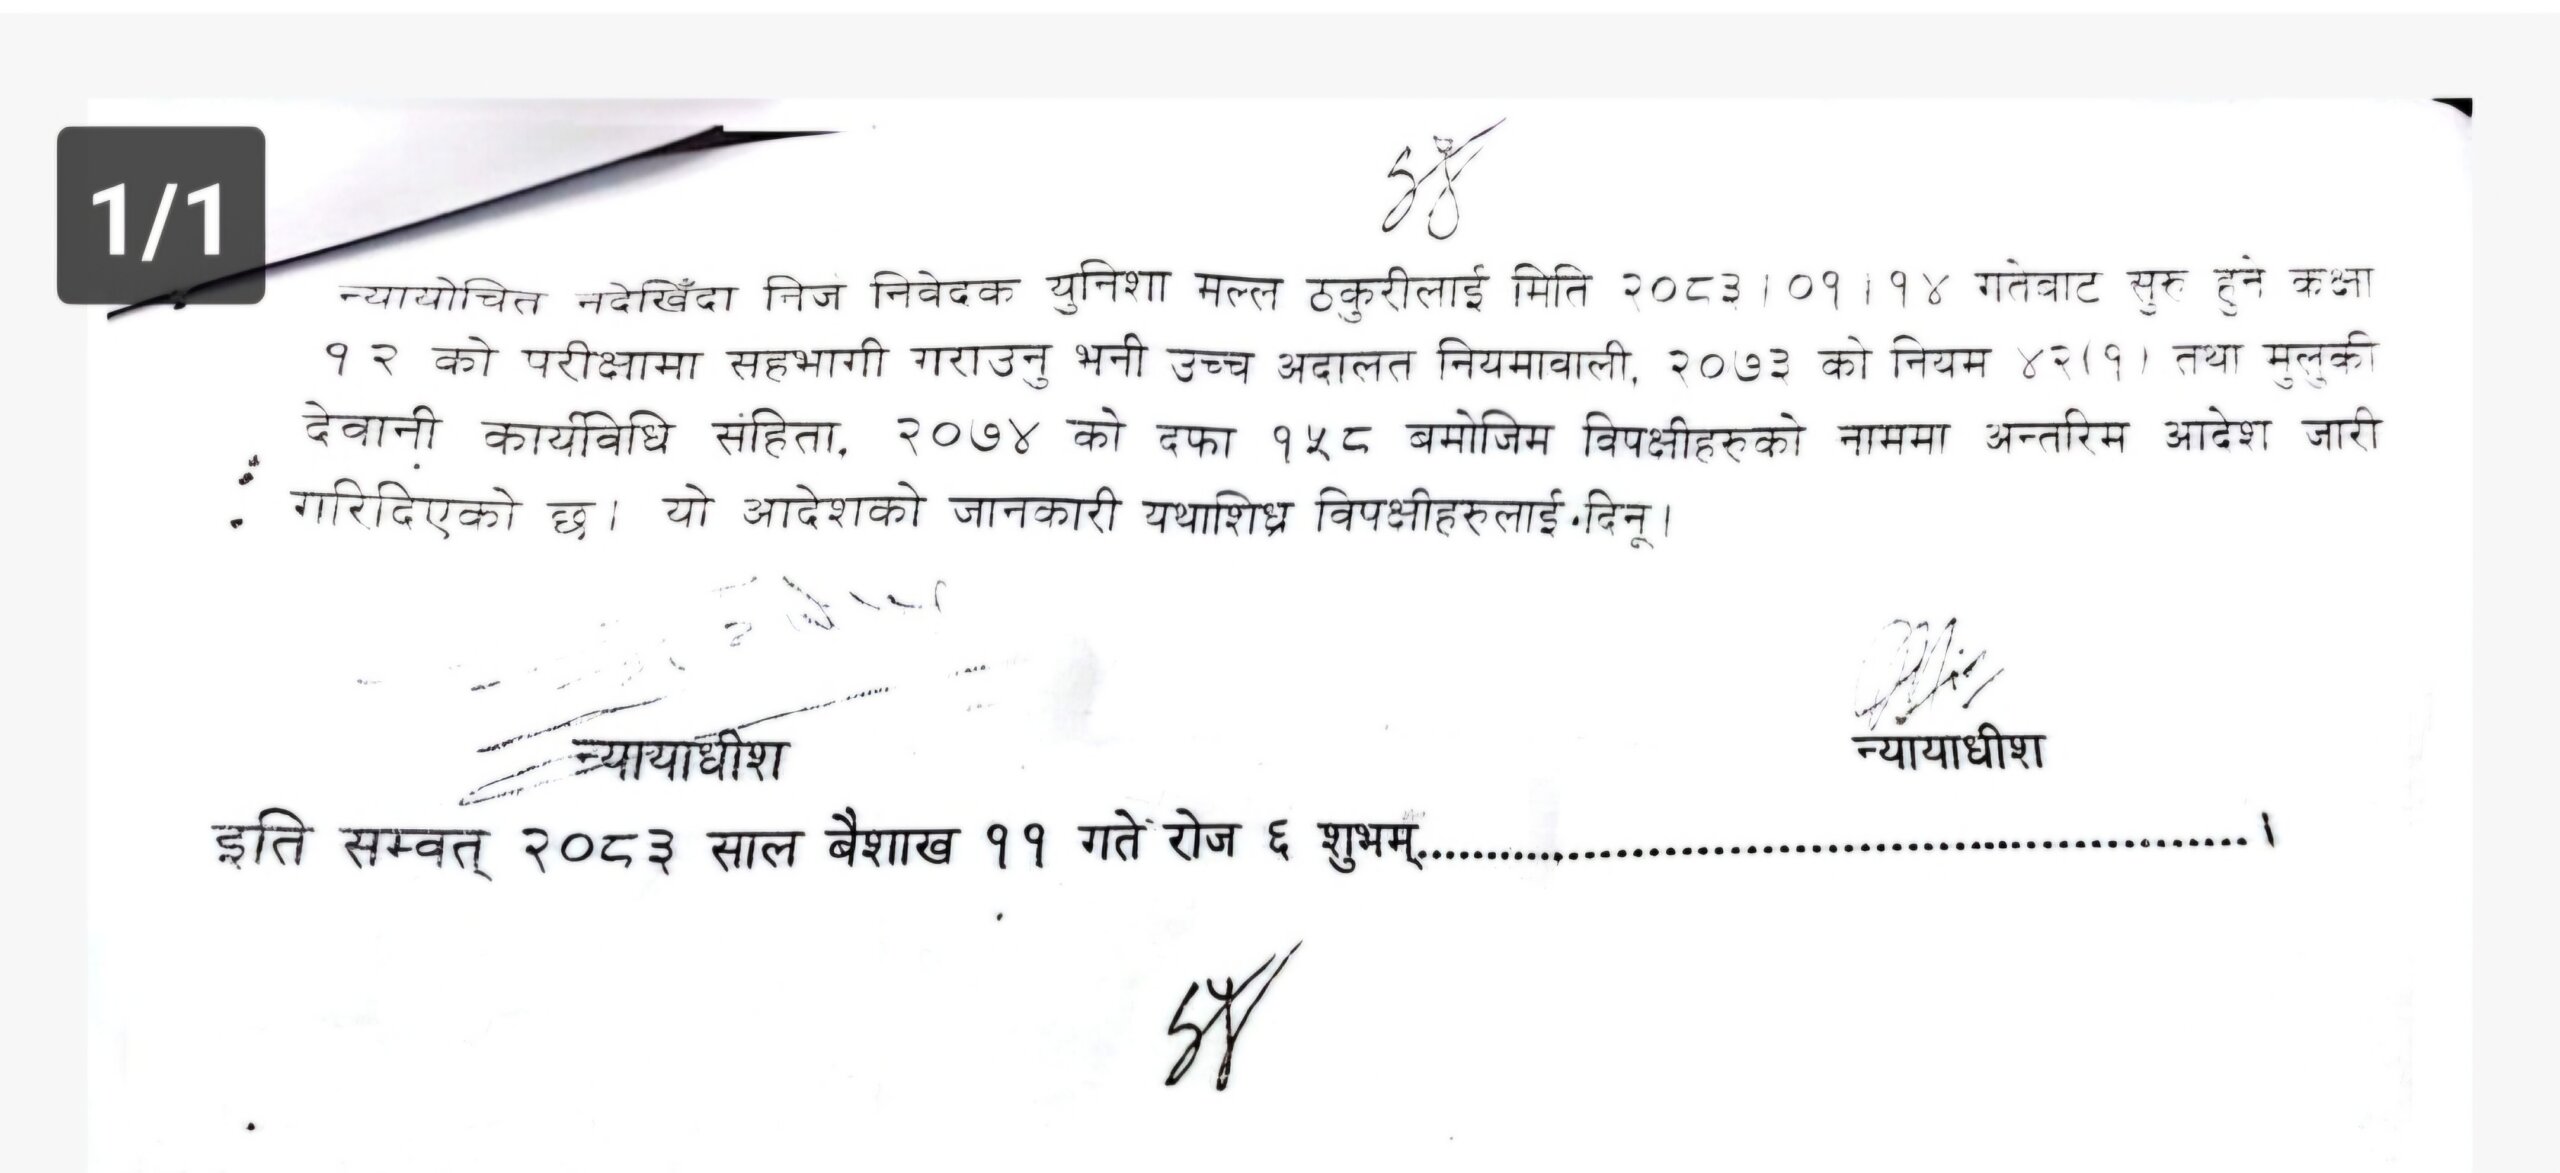 1/1
न्यायोचित नदेखिँदा निज निवेदक युनिशा मल्ल ठकुरीलाई मिति २०८३।०१।१४ गतेबाट सुरु हुने कक्षा
१२ को परीक्षामा सहभागी गराउनु भनी उच्च अदालत नियमावाली, २०७३ को नियम ४२(१) तथा मुलुकी
देवानी कार्यविधि संहिता, २०७४ को दफा १५८ बमोजिम विपक्षीहरुको नाममा अन्तरिम आदेश जारी
गरिदिएको छ। यो आदेशको जानकारी यथाशिघ्र विपक्षीहरुलाई दिनू।
न्यायाधीश न्यायाधीश
इति सम्वत् २०८३ साल बैशाख ११ गते रोज ६ शुभम्..............................................................।